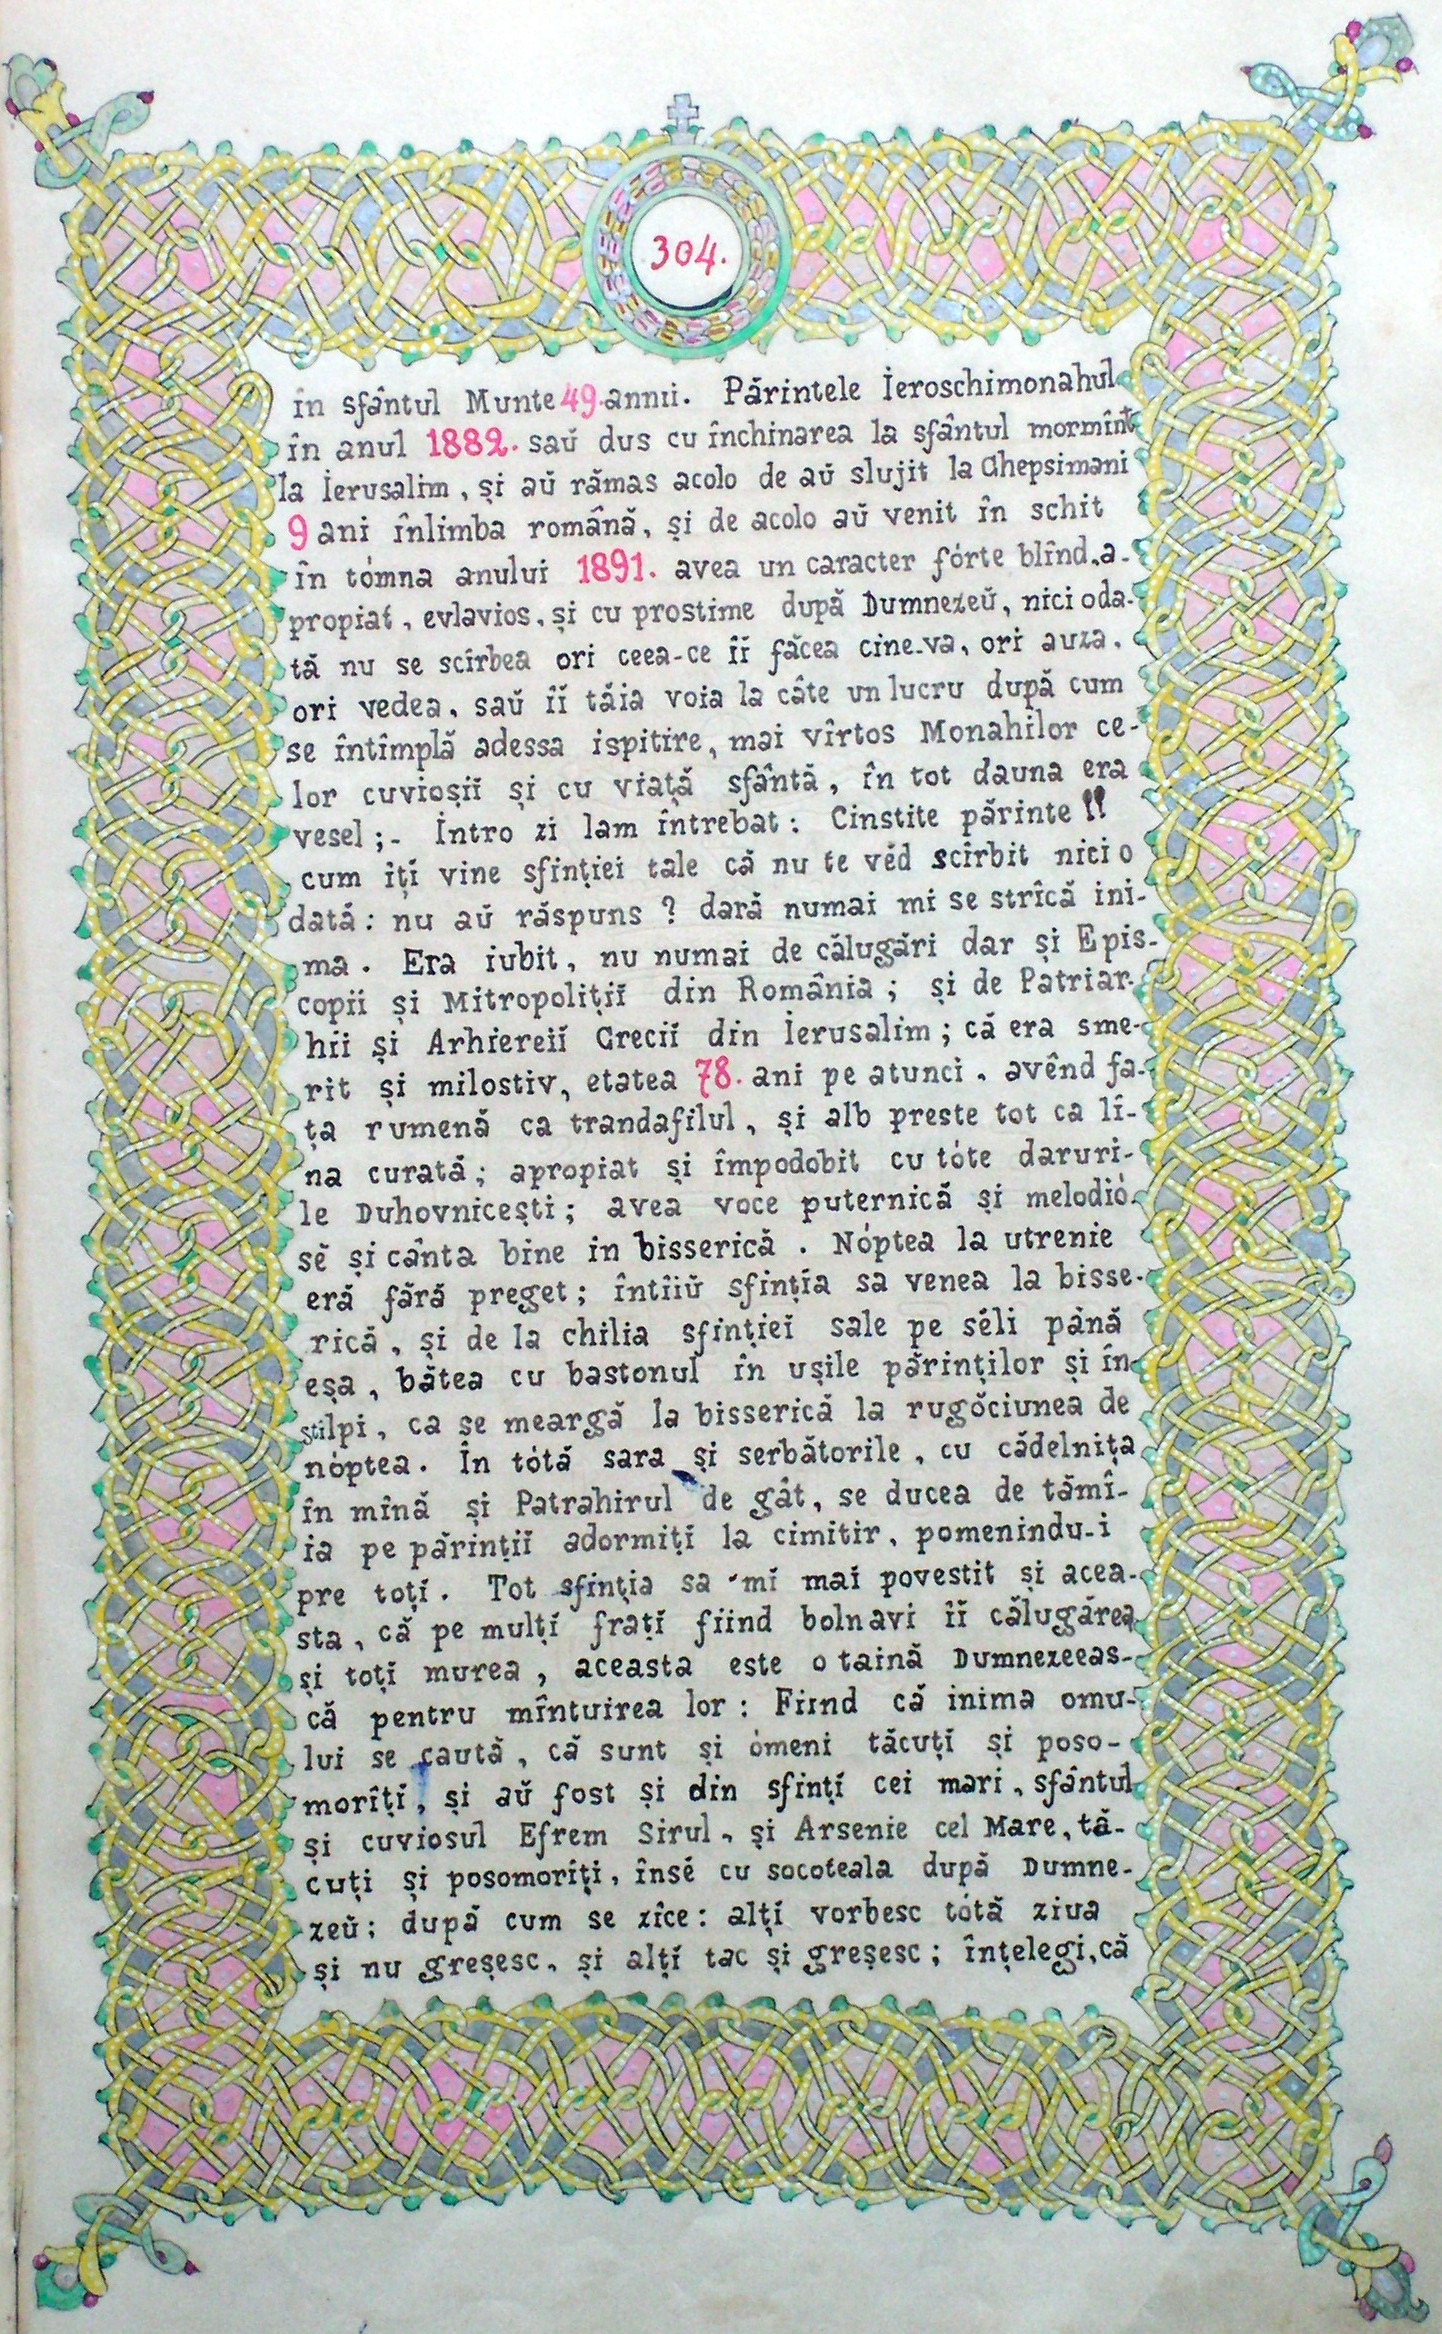 304.
în sfântul Munte 49. annii. Părintele Ieroschimonahul
în anul 1882. saŭ dus cu închinarea la sfântul mormînt
la Ierusalim, și aŭ rămas acolo de aŭ slujit la Ghepsimani
9 ani înlimba română, și de acolo aŭ venit în schit
în tómna anului 1891. avea un caracter fórte blînd, a-
propiat, evlavios, și cu prostime după Dumnezeŭ, nici oda-
tă nu se scîrbea ori ceea-ce îĭ făcea cine-va, ori auza,
ori vedea, saŭ îĭ tăia voia la câte un lucru după cum
se întîmplă adessa ispitire, mai vîrtos Monahilor ce-
lor cuvioșiĭ și cu viață sfântă, în tot dauna era
vesel ;- Intro zi lam întrebat : Cinstite părinte !!
cum îțĭ vine sfinției tale că nu te vĕd scîrbit nici o
dată : nu aŭ răspuns ? dară numai mi se strîcă ini-
ma . Era iubit, nu numai de călugări dar și Epis-
copii și Mitropolițiĭ din România ; și de Patriar-
hii și Arhiereiĭ Greciĭ din Ierusalim ; că era sme-
rit și milostiv, etatea 78. ani pe atunci. avênd fa-
ța rumenă ca trandafilul, și alb preste tot ca lî-
na curată ; apropiat și împodobit cu tóte daruri-
le Duhovnicești ; avea voce puternică și melodió-
sĕ și cânta bine in bisserică . Nóptea la utrenie
eră fără preget ; întîiŭ sfinția sa venea la bisse-
rică, și de la chilia sfințieĭ sale pe sĕli până
eșa, bătea cu bastonul în ușile părinților și în
stilpi, ca se meargă la bisserică la rugŏciunea de
nóptea. În tótă sara și serbătorile, cu cădelnița
în mînă și Patrahirul de gât, se ducea de tămî-
ia pe părințiĭ adormițĭ la cimitir, pomenindu-i
pre toțĭ. Tot sfinția sa mĭ mai povestit și acea-
sta, că pe mulțĭ frațĭ fiind bolnavi îĭ călugărea
și toțĭ murea, aceasta este o taină Dumnezeeas-
că pentru mîntuirea lor : Fiind că inima omu-
lui se caută, că sunt și ómeni tăcuțĭ și poso-
morîțĭ, și aŭ fost și din sfințĭ cei mari, sfântul
și cuviosul Efrem Sirul, și Arsenie cel Mare, tă-
cuți și posomorîți, însĕ cu socoteala după Dumne-
zeŭ ; după cum se zîce : alțĭ vorbesc tótă ziua
și nu greșesc, și alțĭ tac și greșesc ; înțelegi, că